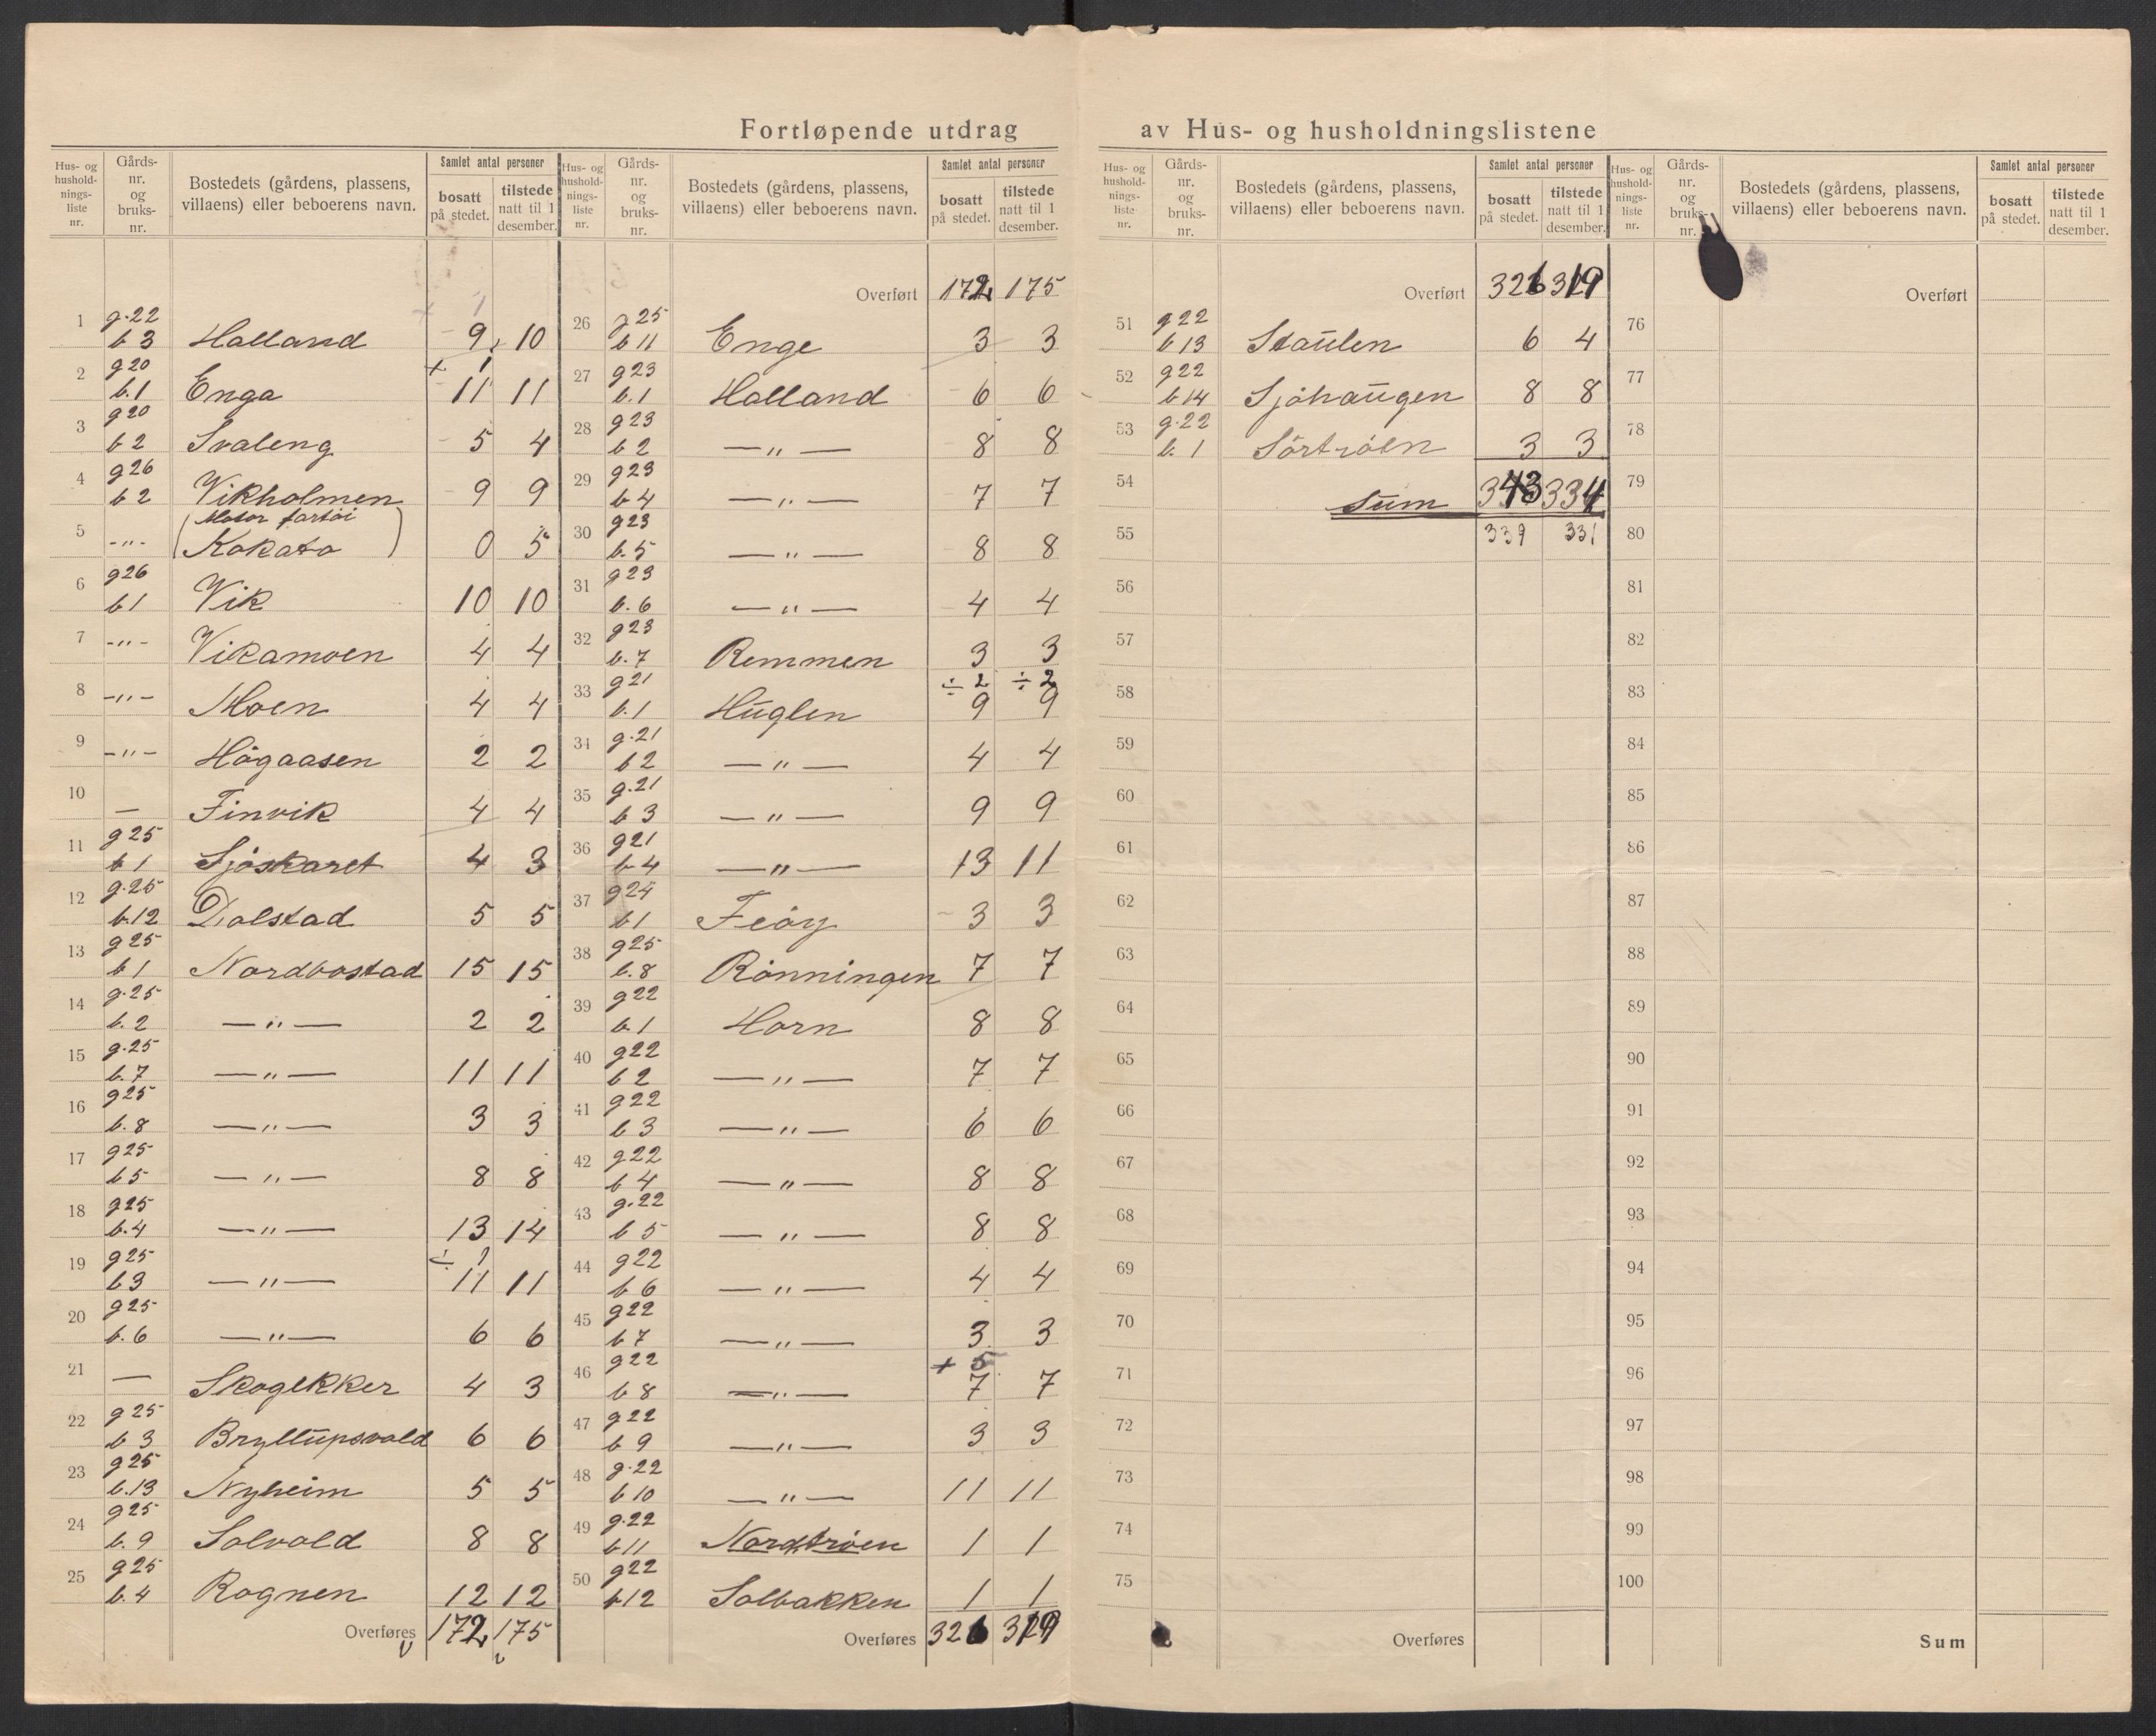 Fortløpende utdrag av Hus- og husholdningslistene
Hus- og hushold-nings-liste nr. | Gårds-nr. og bruks-nr. | Bostedets (gårdens, plassens, villaens) eller beboerens navn. | Samlet antal personer | bosatt på stedet. | tilstede natt til 1 desember.
1 g.22 b 3 Halland 9 10
+ 1
2 g20 b.1 Enga 11 11
3 g20 b 2 Svaleng 5 4
4 g26 b 2 Vikholmen 9 9
5 -"- (Motor fartöi Kakato) 0 5
6 g26 b1 Vik 10 10
7 -"- Vikamoen 4 4
8 -"- Moen 4 4
9 -"- Högaasen 2 2
10 — Finvik 4 4
11 g25 b1 Sjöskaret 4 3
12 g.25 b.12 Dalstad 5 5
13 g25 b1 Nordbostad 15 15
14 g.25 b.2 —"— 2 2
15 g.25 b.7 —"— 11 11
16 g25 b.8 —"— 3 3
17 g25 b5 —"— 8 8
18 g25 b.4 —"— 13 14
÷ 1
19 g25 b3 —"— 11 11
20 g25 b.6 —"— 6 6
21 — Skogekker 4 3
22 g25 b3 Bryllupsvold 6 6
23 g25 b.13 Nyheim 5 5
24 g25 b.9 Solvold 8 8
25 g25 b.4 Rognen 12 12
Overføres 172 175
Hus- og hushold-nings-liste nr. | Gårds-nr. og bruks-nr. | Bostedets (gårdens, plassens, villaens) eller beboerens navn. | Samlet antal personer | bosatt på stedet. | tilstede natt til 1 desember.
Overført 172 175
26 g25 b11 Enge 3 3
27 g23 b.1 Halland 6 6
28 g23 b2 —"— 8 8
29 g23 b4 —"— 7 7
30 g23 b.5 —"— 8 8
31 g23 b.6 —"— 4 4
32 g23 b.7 Remmen 3 3
÷ 2 ÷ 2
33 g21 b.1 Huglen 9 9
34 g.21 b2 —"— 4 4
35 g.21 b3 —"— 9 9
36 g21 b4 —"— 13 11
37 g24 b1 Feöy 3 3
38 g25 b.8 Rönningen 7 7
39 g22 b.1 Horn 8 8
40 g22 b2 —"— 7 7
41 g22 b3 —"— 6 6
42 g22 b4 —"— 8 8
43 g.22 b5 —"— 8 8
44 g22 b6 —"— 4 4
45 g22 b7 —"— 3 3
+ 5
46 g22 b8 —"— 7 7
47 g22 b9 —"— 3 3
48 g.22 b10 —"— 11 11
49 g.22 b11 Nordtröen 1 1
50 g22 b12 Solbakken 1 1
Overføres 326 319
Hus- og hushold-nings-liste nr. | Gårds-nr. og bruks-nr. | Bostedets (gårdens, plassens, villaens) eller beboerens navn. | Samlet antal personer | bosatt på stedet. | tilstede natt til 1 desember.
Overført 326 319
51 g22 b13 Staulen 6 4
52 g22 b14 Sjöhaugen 8 8
53 g.22 b.1 Sörtröen 3 3
54 Sum 343 334
55 339 331
56
57
58
59
60
61
62
63
64
65
66
67
68
69
70
71
72
73
74
75
Overføres
Hus- og hushold-nings-liste nr. | Gårds-nr. og bruks-nr. | Bostedets (gårdens, plassens, villaens) eller beboerens navn. | Samlet antal personer | bosatt på stedet. | tilstede natt til 1 desember.
Overført
76
77
78
79
80
81
82
83
84
85
86
87
88
89
90
91
92
93
94
95
96
97
98
99
100
Sum